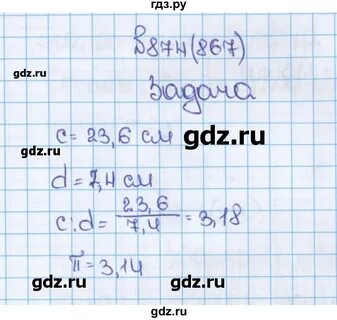 В874(867)
Задача
gdz.ru
gdz.ru
c = 23,6 см
gdz.ru
d = 7,4 см
gdz.ru
c:d = 23,6 / 7,4 = 3,18
gdz.ru
π = 3,14
gdz.ru
gdz.ru